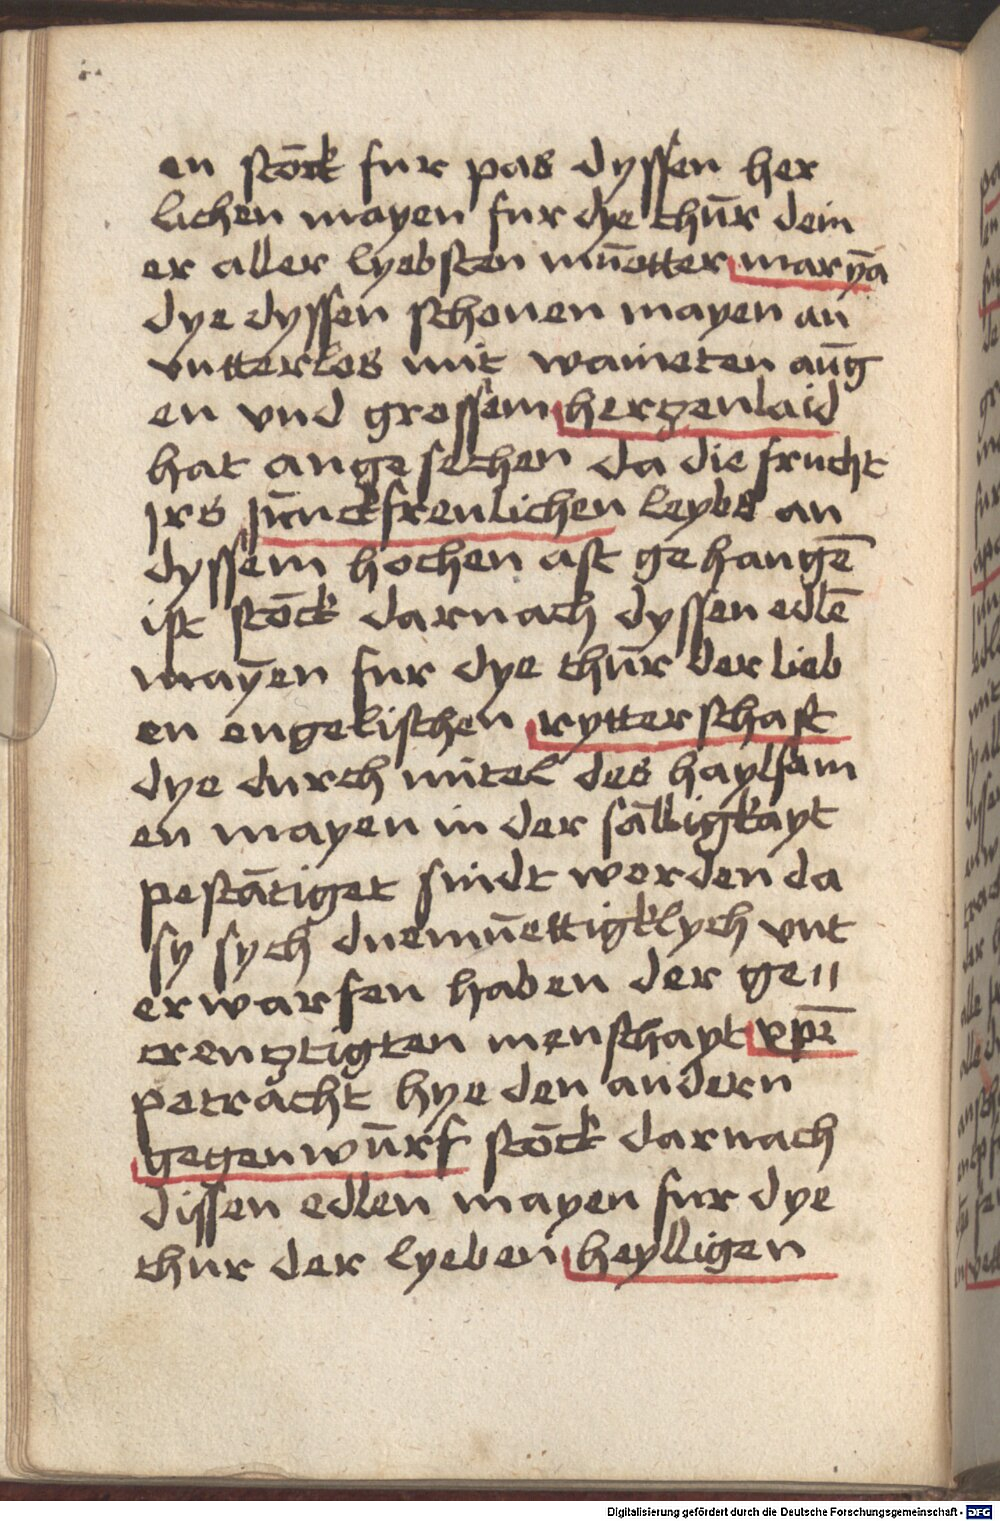 en stöck fur pas dyssen her
lichen mayen fur dye thür dein
er aller lyebsten müotter marÿa
dye dyssen schonen mayen an
vntterlos mit waineten aüg
en vnd grossem herzenlaid
hat angesechen da die frucht
jrs jünckfrenlichen leybs an
dyssem hochen ast gehangē
ist stöck darnach dyssen edlē
maÿen fur dye thür der lieb
en engelischen rytterschaft
dye durch mitel des haylsam
en mayen in der sälligkayt
pestätiget sindt worden da
sy sych diemüettigklych vnt
erwarfen haben der ge〃
crenztigten menschayt xp̄i
petracht hye den andern
gegenwürf stöck darnach
dissen edlen mayen fur dye
thur der lyeben heylligen
Digitalisierung gefördert durch die Deutsche Forschungsgemeinschaft - DFG